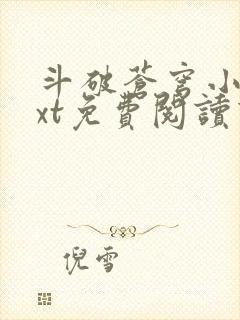 斗破蒼穹小
xt免費閱讀
倪雪